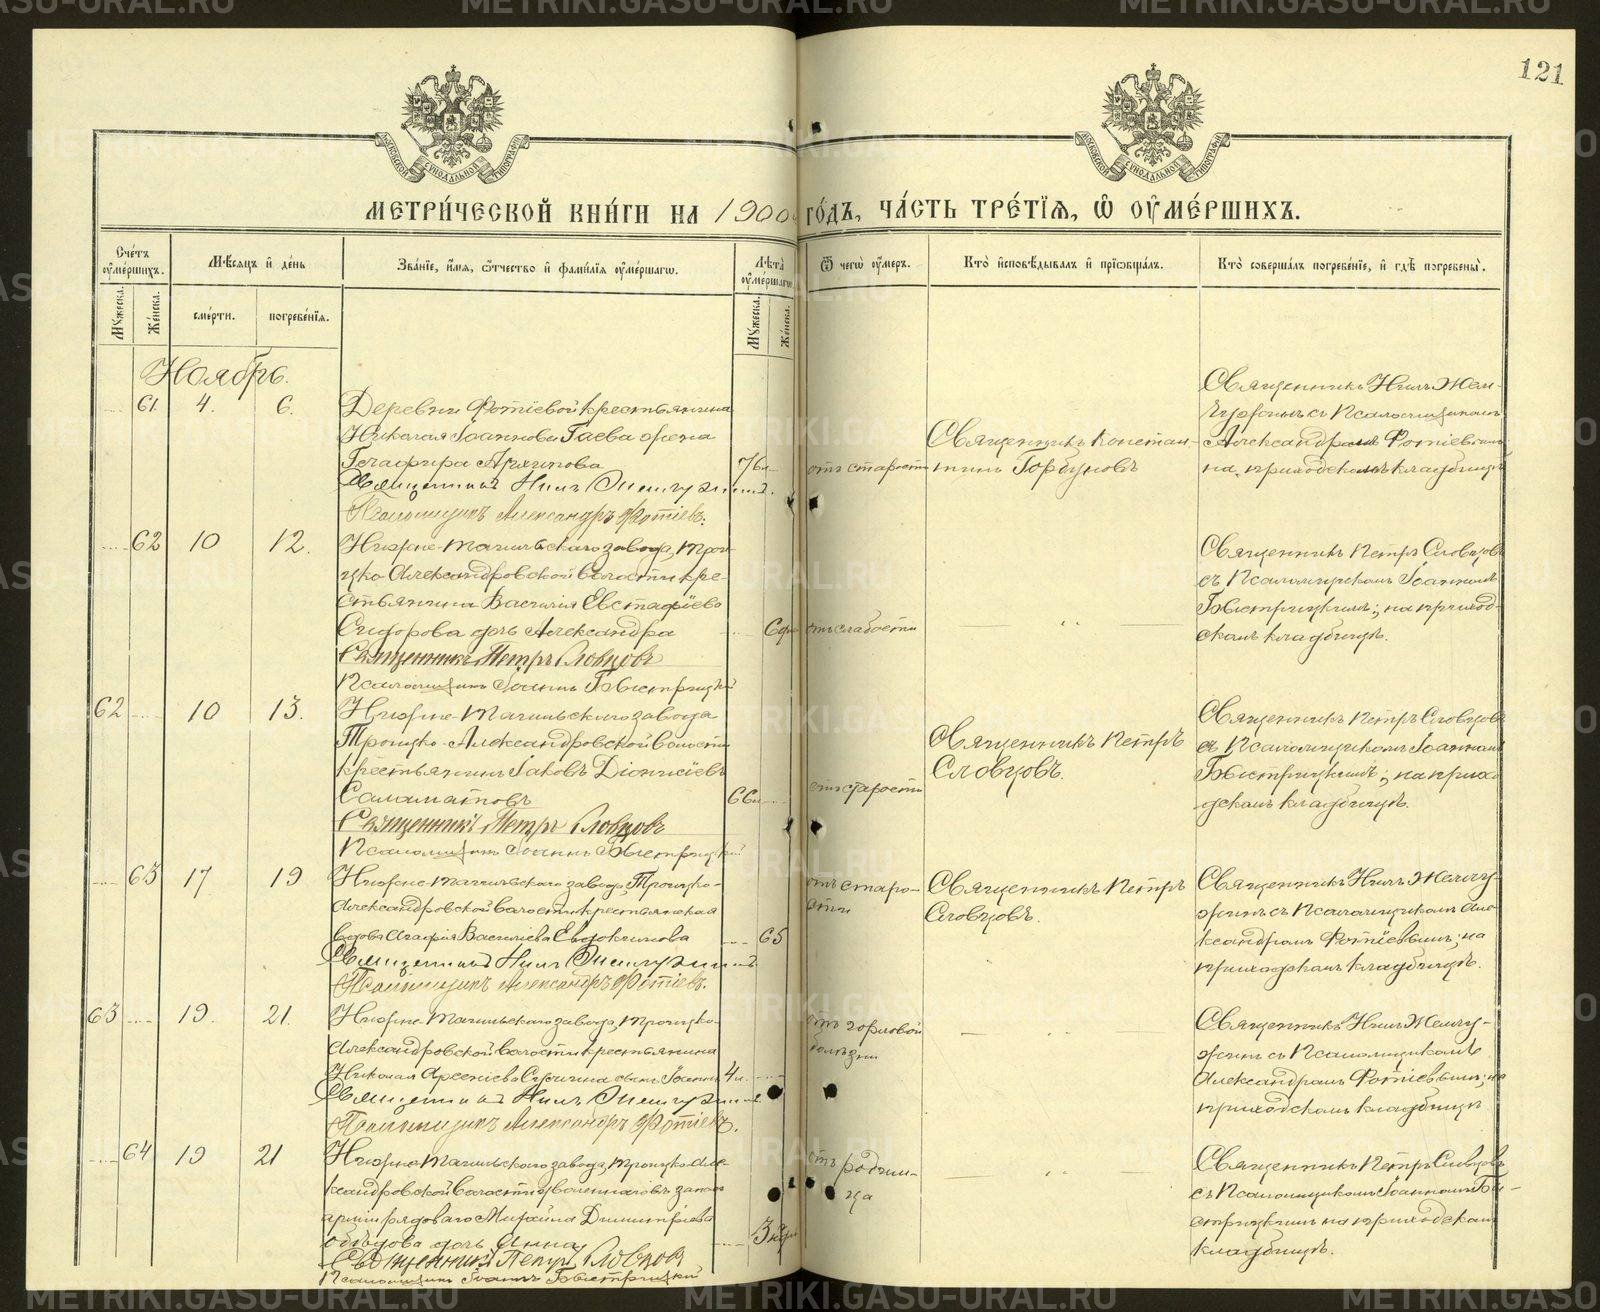 121
МОСКОВСКОЙ СУНОДАЛЬНОЙ ТИПОГРАФІИ
МОСКОВСКОЙ СУНОДАЛЬНОЙ ТИПОГРАФІИ
МЕТРИ́ЧЕСКОЙ КНИ́ГИ НА 1900 ГО́ДЪ, ЧА́СТЬ ТРЕ́ТІЯ, Ѡ ОУМЕ́РШИХЪ.
Сче́тъ оуме́ршихъ.
Мѣ́сяцъ и де́нь
Зва́ніе, и́мя, о́тчество и фами́лія оуме́ршагѡ.
Лѣта̀ оуме́ршагѡ
Ѿ чегѡ̀ оу́меръ.
Кто̀ и҆сповѣ́дывалъ и҆ пріѡбща́лъ.
Кто̀ соверша́лъ погребе́ніе, и҆ гдѣ̀ погребены̀.
Мꙋжеска.
Же́нска.
сме́рти.
погребе́нія.
Мꙋжеска.
Же́нска.
Ноябрь.
61 4. 6.
Деревни Фотіевой крестьянина
Николая Іоаннова Гаева жена
Гл‌афира Архипова 76 л
Священникъ Нилъ Жемчужинъ.
Псаломщикъ Александръ Фотіевъ.
отъ старости
Священникъ Констан-
тинъ Горбуновъ
Священникъ Нилъ Жем-
чужинъ съ Псаломщикомъ
Александромъ Фотіевымъ
на приходскомъ кладбищѣ
62 10 12.
Нижне-Тагильскаго завода, Трои-
цко Александровской волости кре-
стьянина Василія Евстафіева
Сидорова дочь Александра
Священникъ Петръ Словцовъ
Псаломщикъ Іоаннъ Быстрицкій
отъ слабости
Священникъ Петръ Словцовъ
съ Псаломщикомъ Іоанномъ
Быстрицкимъ; на приход-
скомъ кладбищѣ.
62 10 13.
Нижне-Тагильскаго завода
Троицко-Александровской волости
крестьянинъ Іаковъ Діонисіевъ
Саламатовъ 66 л
Священникъ Петръ Словцовъ
Псаломщикъ Іоаннъ Быстрицкій
отъ старости
Священникъ Петръ
Словцовъ.
Священникъ Петръ Словцовъ
съ Псаломщикомъ Іоанномъ
Быстрицкимъ; на прихо-
дскомъ кладбищѣ.
63 17 19
Нижне-Тагильскаго завода, Троицко-
Александровской волости крестьянская
вдова Агафія Васильева Евдокимова 65
Священникъ Нилъ Жемчужинъ.
Псаломщикъ Александръ Фотіевъ.
отъ старо-
сти
Священникъ Петръ
Словцовъ.
Священникъ Нилъ Жемчу-
жинъ съ Псаломщикомъ Але-
ксандромъ Фотіевымъ; на
приходскомъ кладбищѣ.
63 19. 21.
Нижне-Тагильскаго завода, Троицко-
Александровской волости крестьянина
Николая Арсеніева сынъ Іоаннъ 4 л.
Священникъ Нилъ Жемчужинъ
Псаломщикъ Александръ Фотіевъ.
отъ горловой
болѣзни
Священникъ Нилъ Жемчу-
жинъ съ Псаломщикомъ
Александромъ Фотіевымъ; на
приходскомъ кладбищѣ
64 19 21
Нижне Тагильскаго завода, Троицко Але-
ксандровской волости, уволеннаго въ запасъ
арміи рядоваго Михаила Димитріева
Обѣдова дочь Анна
Священникъ Петръ Словцовъ
Псаломщикъ Іоаннъ Быстрицкій
отъ родим-
ца
Священникъ Петръ Словцовъ
съ Псаломщикомъ Іоанномъ Бы-
стрицкимъ на приходскомъ
кладбищѣ.
METRIKI.GASU-URAL.RU